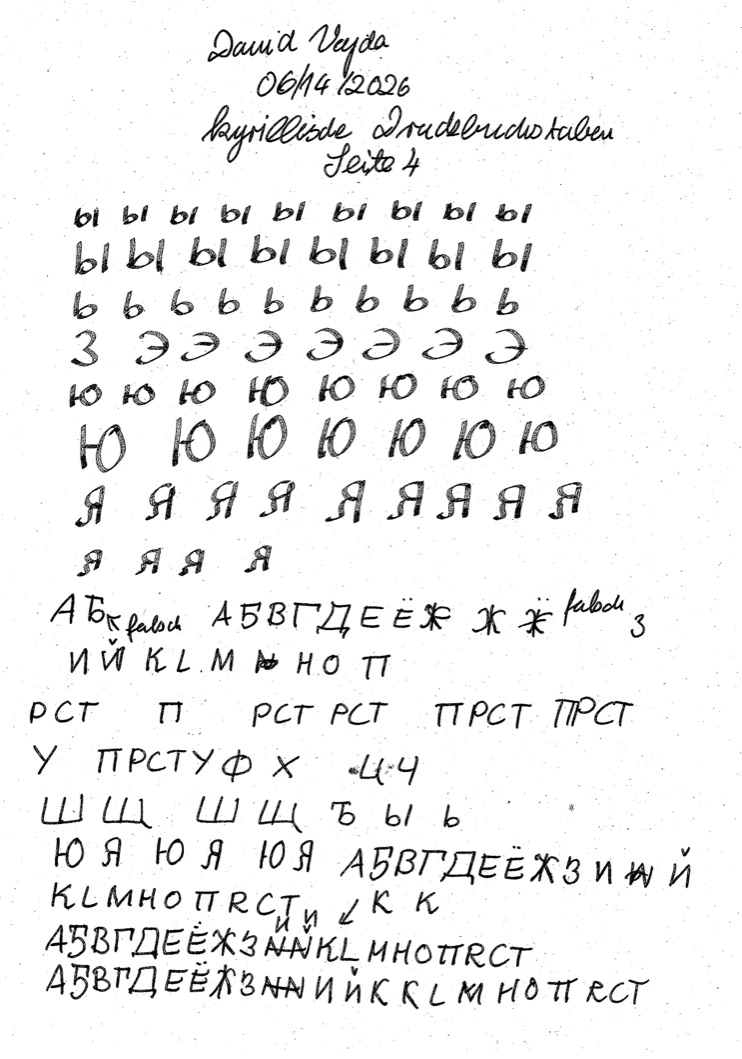 David Vajda
06/14/2026
kyrillische Druckbuchstaben
Seite 4
ы ы ы ы ы ы ы ы ы
Ы Ы Ы Ы Ы Ы Ы Ы
ь ь ь ь ь ь ь ь ь ь
З Э Э Э Э Э Э Э
ю ю ю ю ю ю ю ю
Ю Ю Ю Ю Ю Ю Ю
Я Я Я Я Я Я Я Я Я
я я я я
А Б falsch А Б В Г Д Е Ё Ж Ж falsch З
И Й К L М Н О П
Р С Т П Р С Т Р С Т П Р С Т П Р С Т
У П Р С Т У Ф Х Ц Ч
Ш Щ Ш Щ Ъ Ы Ь
Ю Я Ю Я Ю Я А Б В Г Д Е Ё Ж З И Й
К L М Н О П R С Т И И К К
А Б В Г Д Е Ё Ж З И Й К L М Н О П R С Т
А Б В Г Д Е Ё Ж З И Й К К L М Н О П R С Т